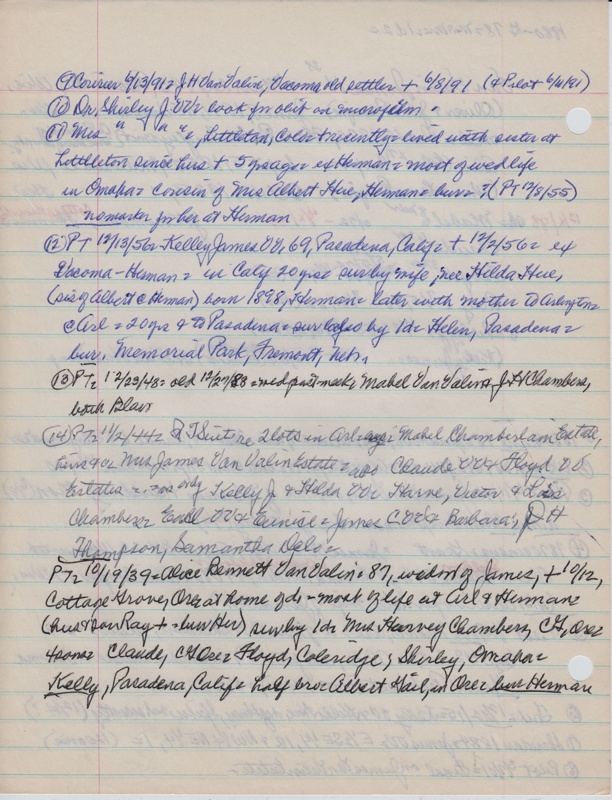 ⑨ Courier 6/13/91= J H Van Valin, Tacoma old settler + 6/8/91 (& Pilot 6/11/91)
⑩ Dr. Shirley J. VV= look for obit on microfilm =
⑪ Mrs " " Va " =, Littleton, Colo + recently = lived with sister at
Littleton since hus + 5 yrs ago = ex Herman = most of wed life
in Omaha = cousin of Mrs Albert Hue, Herman = bur = ? (PT 12/8/55)
no marker for her at Herman
⑫ PT 12/13/56 = Kelley James VV, 69, Pasadena, Calif = + 12/2/56 = ex
Tacoma - Herman = in Calif 20 yrs = sur by wife, nee Hilda Hue,
(sis of Albert @ Herman) born 1898, Herman = later with mother to Arlington =
@ Arl = 20 yrs & to Pasadena = sur also by 1d = Helen, Pasadena =
bur, Memorial Park, Fremont, Neb,
⑬ PT= 12/23/43 = old 12/27/88 = wed past week = Mabel Van Valin & J. H Chambers,
both Blair
⑭ PT= 11/2/44 = Suit re 2 lots in Arl = Mabel Chamberlain Estate,
heirs &c Mrs James Van Valin Estate = also Claude VV & Floyd VV
Estates = only Kelly J & Hilda VV= Harve, Victor & Lois
Chambers= Earl VV & Eunice = James C VV & Barbara, H
Thompson, Samantha Delo =
PT= 10/19/39 = Alice Bennett Van Valin = 87, widow of James, + 10/12,
Cottage Grove, Ore at home of d = most of life at Arl & Herman =
(hus & son Ray + = bur Her) sur by 1d = Mrs Harvey Chambers, CG, Ore =
4 sons = Claude, CG Ore = Floyd, Coleridge; Shirley, Omaha =
Kelly, Pasadena, Calif = half bro = Albert Hail, in Ore = bur Herman